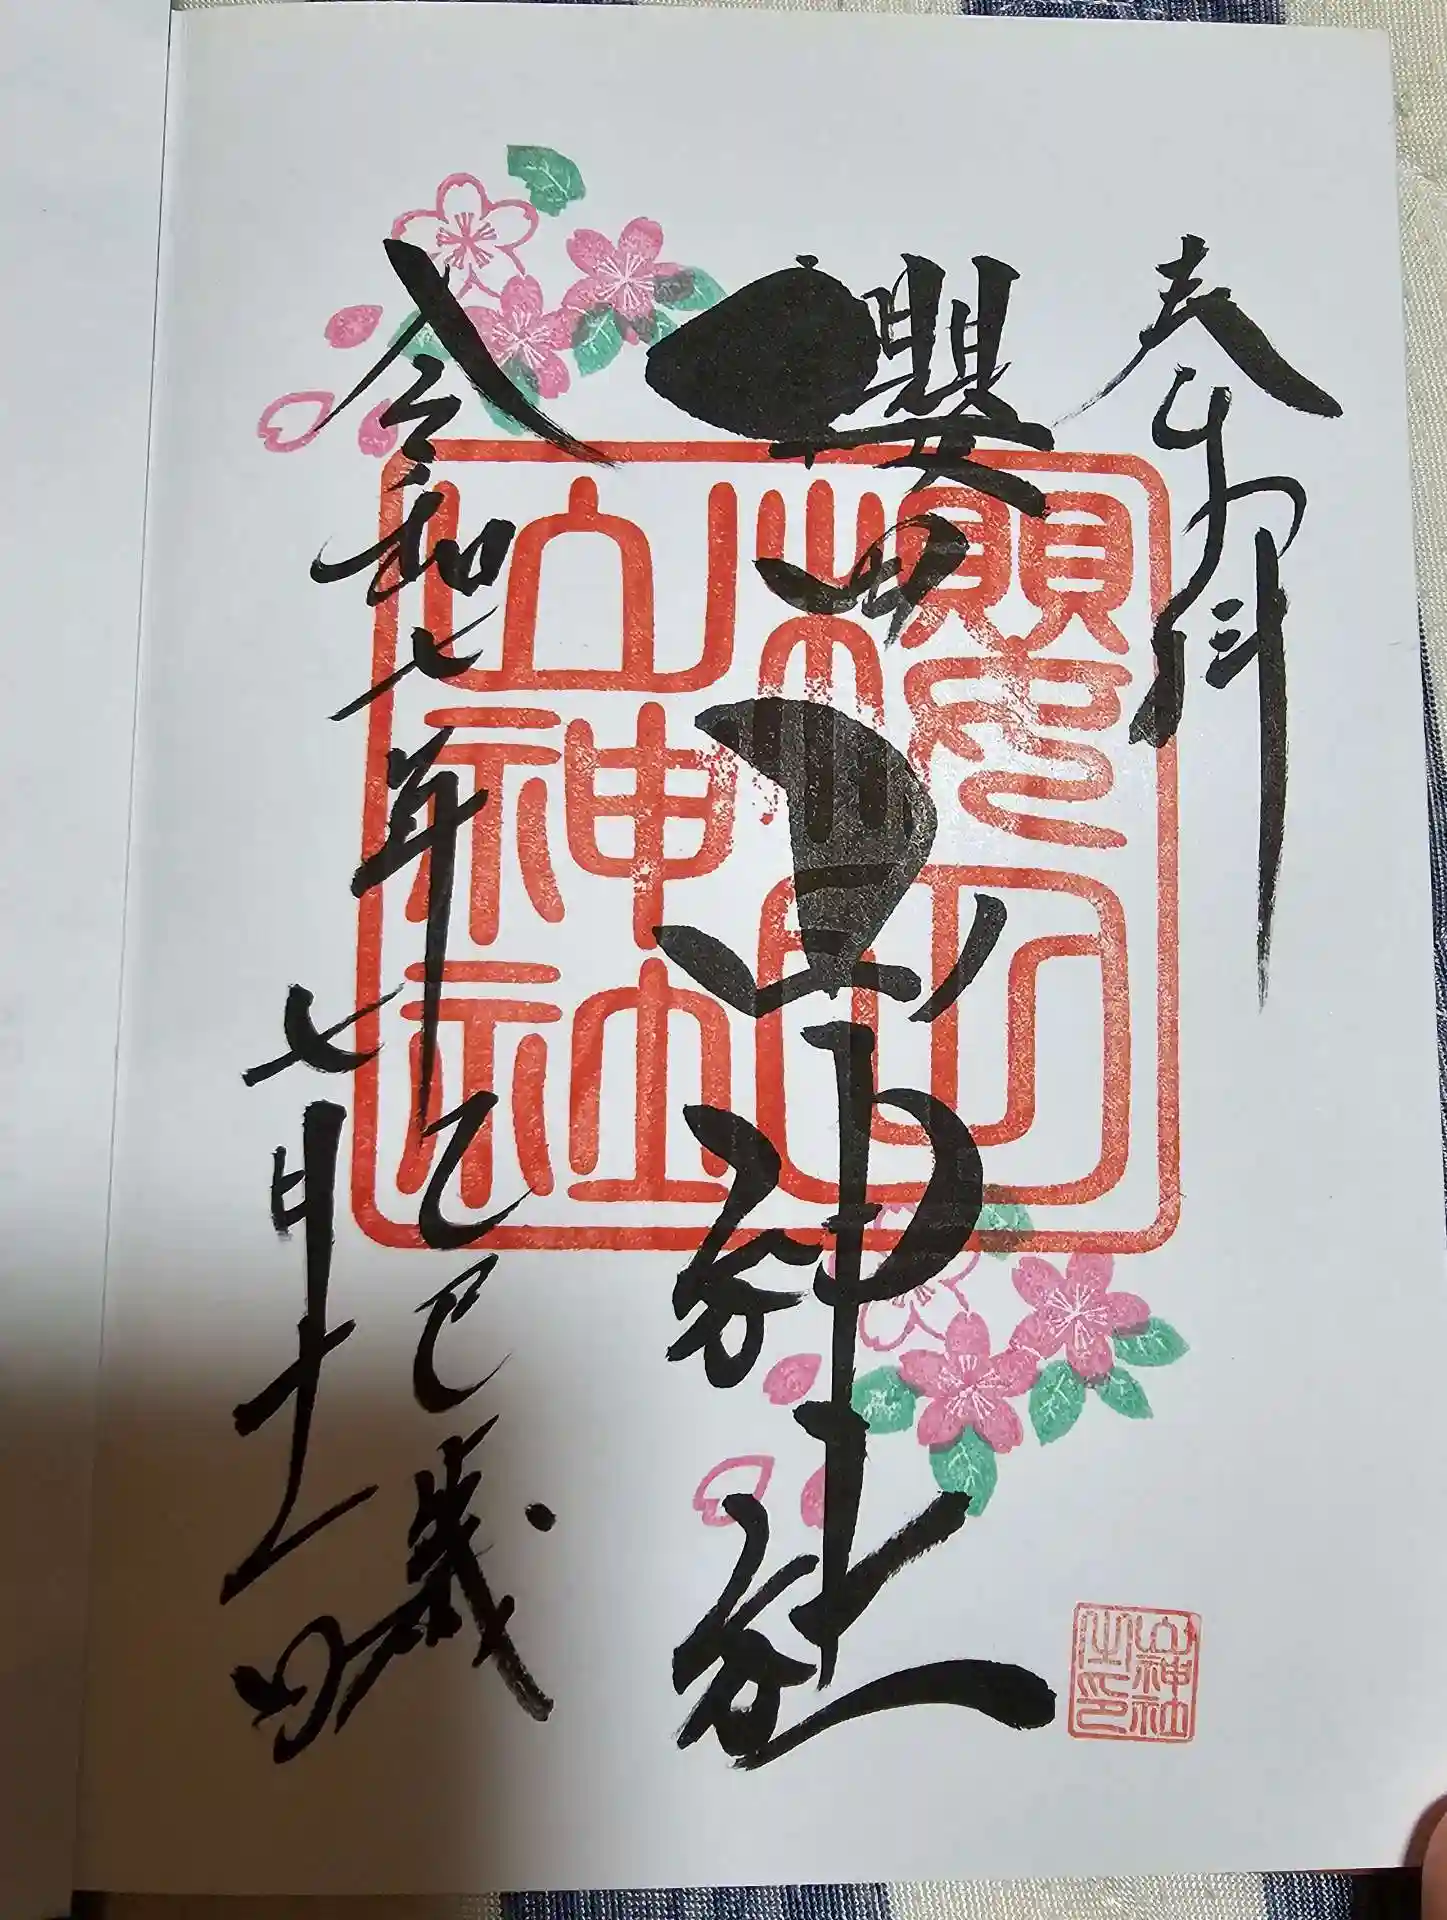 奉拝
櫻田山神社
令和七年乙巳歳
七月十一日
櫻田
山神社
山神社
之印